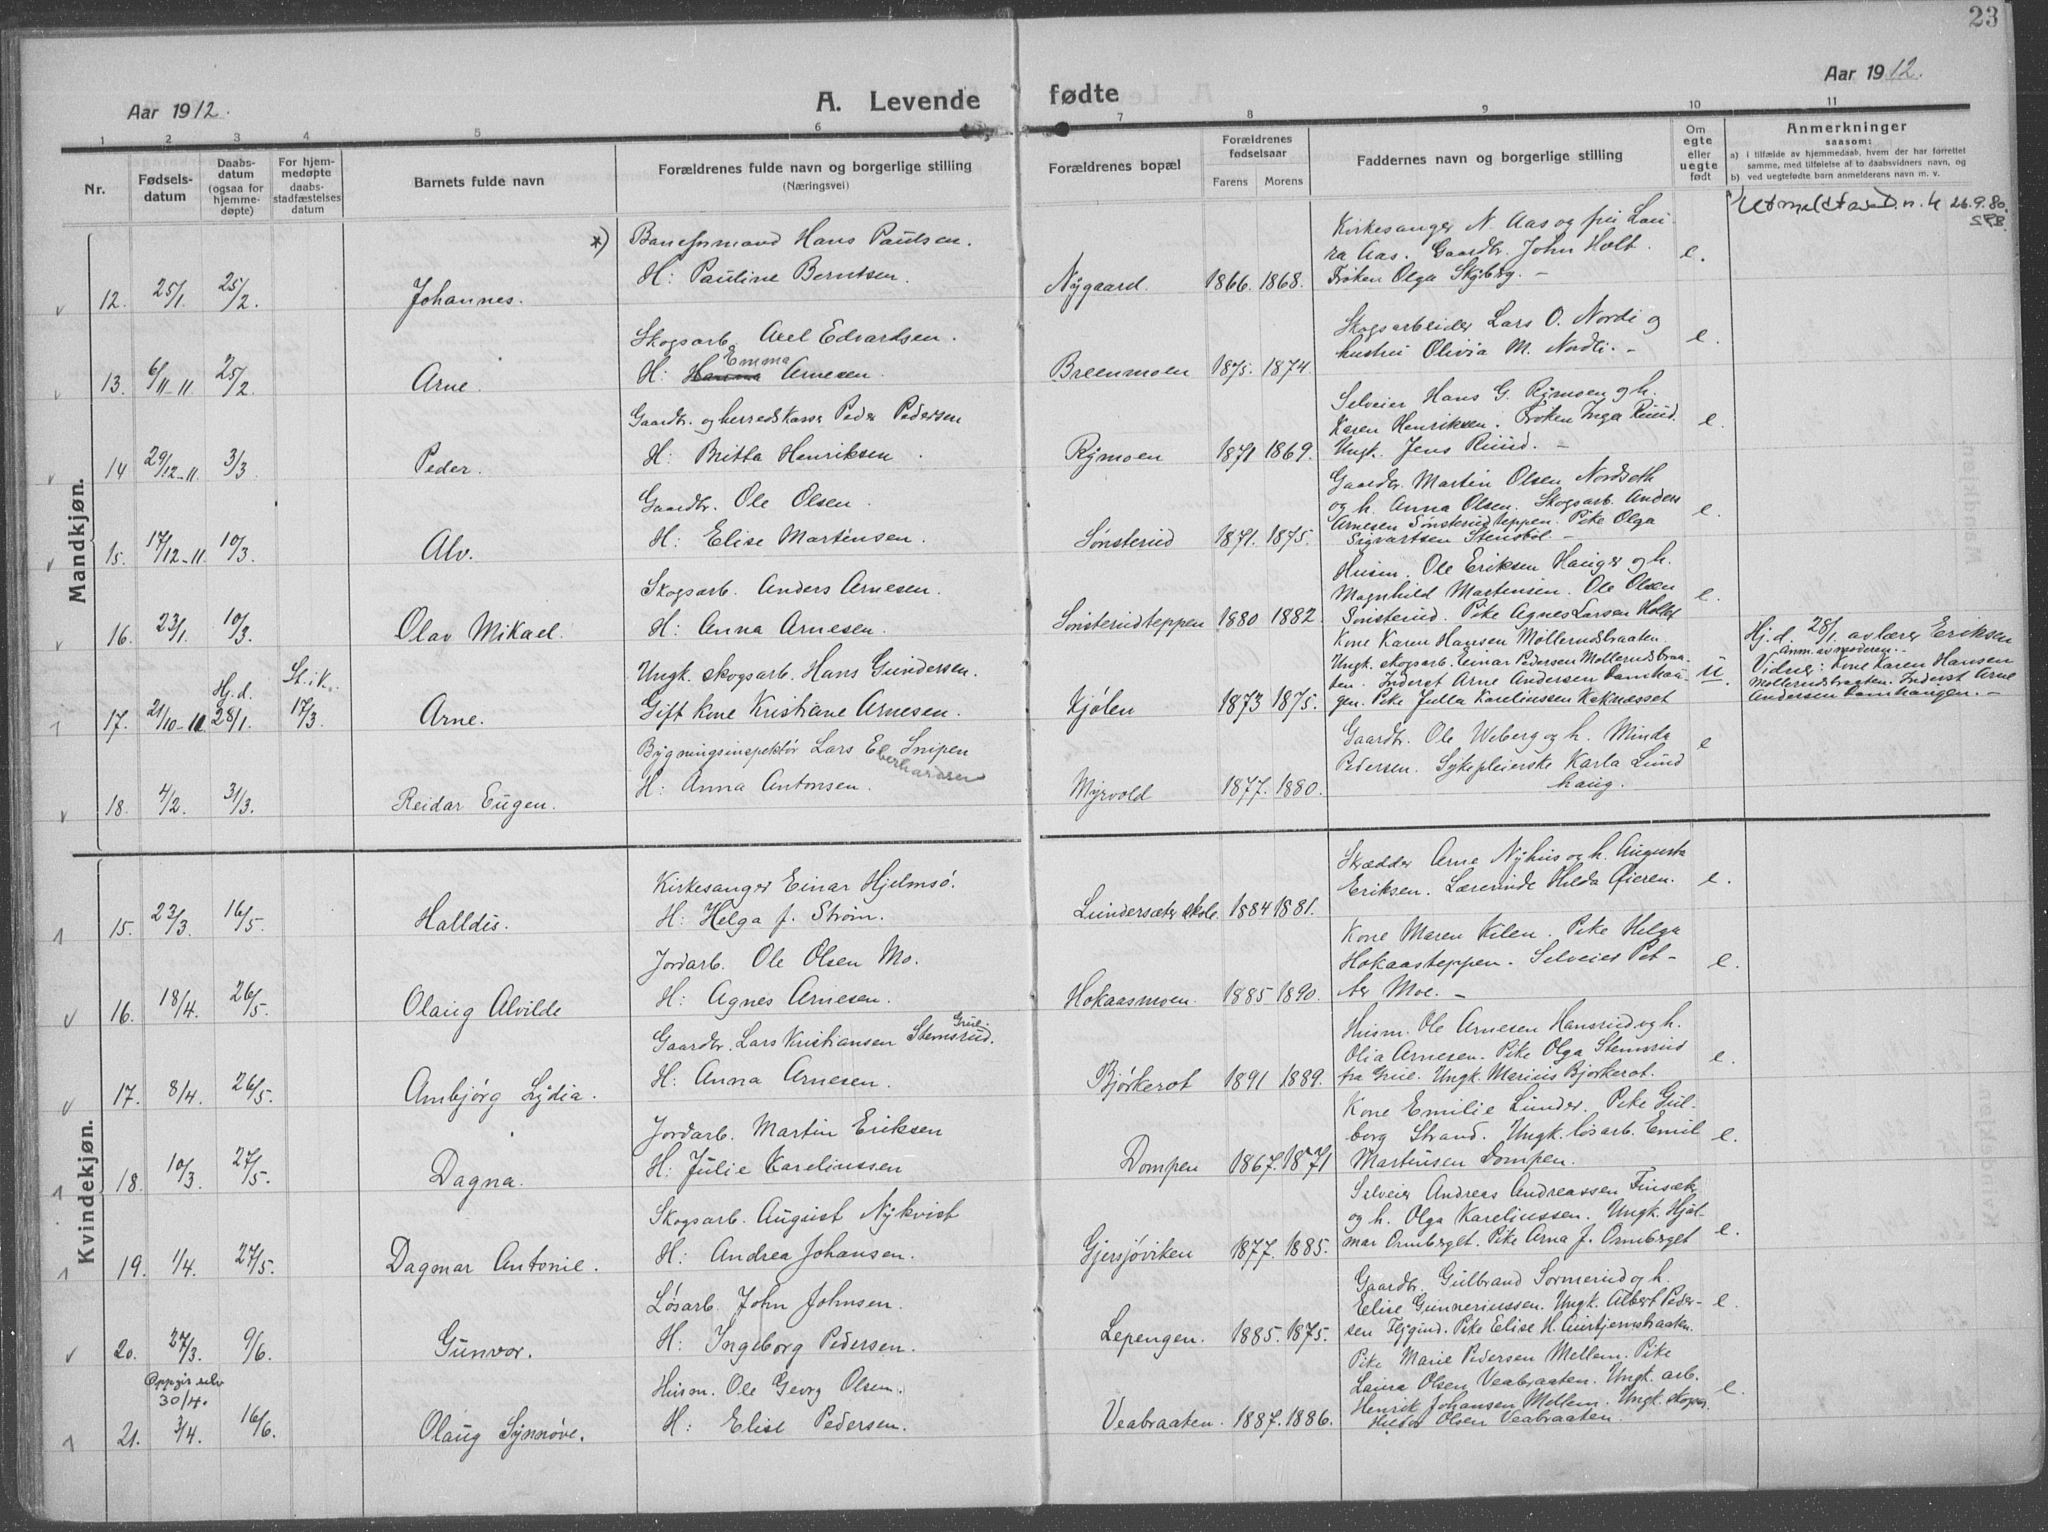 23
Aar 1912.
A. Levende fødte
Aar 1912.
1 2 3 4 5 6 7 8 9 10 11
Nr.
Fødsels-
datum
Daabs-
datum
(ogsaa for
hjemme-
døpte)
For hjem-
medøpte
daabs-
stadfæstelses
datum
Barnets fulde navn
Forældrenes fulde navn og borgerlige stilling
(Næringsvei)
Forældrenes bopæl
Forældrenes
fødselsaar
Farens Morens
Faddernes navn og borgerlige stilling
Om
egte
eller
uegte
født
Anmerkninger
saasom:
a) i tilfælde av hjemmedaab, hvem der har forrettet
samme, med tilføielse af to daabsvidners navn, og
b) ved uegtefødte barn anmelderens navn m. v.
Mandkjøn.
12. 25/1. 25/2. Johannes.
*) Baneformand Hans Paulsen.
H: Pauline Berntsen.
Nygaard. 1866. 1868.
Kirkesanger N. Aas og fru Lau-
ra Aas. Gaardbr. John Holt.
Frøken Olga Skyberg. –
e.
26.9.80.
13. 6/11-11. 25/2. Arne.
Skogsarb. Axel Edvardsen.
Emma
H: Hanna Arnesen.
Breenmoen 1875. 1874.
Skogsarbeider Lars O. Nordli og
hustru Olivia M. Nordli. –
e.
14 29/12-11. 3/3. Peder.
Gaardbr. og herredskasse Peder Pedersen
H: Britta Henriksen.
Rymoen 1871 1869.
Selveier Hans G. Rymoen og h.
Karen Henriksen. Frøken Inga Ruud.
Ungk. Jens Ruud. –
e.
15. 17/12-11. 10/3. Alv.
Gaardbr. Ole Olsen.
H: Elise Martinsen.
Sønsterud 1871. 1875.
Gaardbr. Martin Olsen Nordseth
og h. Anna Olsen. Skogsarb. Anders
Arnesen Sønsterudteppen. Pike Olga
Sigvartsen Stensbøl –
e.
16. 23/1. 10/3. Olav Mikael.
Skogsarb. Anders Arnesen.
H: Anna Arnesen.
Sønsterudteppen 1880 1882.
Husm. Ole Eriksen Hauger og h.
Magnhild Martensen. Ole Olsen
Sønsterud. Pike Agnes Larsen Holtet
e.
17. 21/10-11. Hj.d. 28/1. St.i K. 17/3. Arne.
Ungk. skogsarb. Hans Gundersen.
Gift kone Kristiane Arnesen.
Kjølen 1873 1875.
Kone Karen Hansen Møllerudsbraaten.
Ungk. skogsarb. Einar Pedersen Møllerudsbraa-
ten. Inderst Arne Andersen Damhau-
gen. Pike Julla Karelinssen Keknæsset
u
Hj.d. 28/1. av lærer Eriksen
Anm. av moderen. –
Vidner: Kone Karen Hansen
Møllerudsbraaten. Inderst Arne
Andersen Damhaugen. –
18. 4/2. 31/3. Reidar Eugen.
Bygningsinspektør Lars E. Snipen
Eberhardsen
H: Anna Antonsen.
Myrvold 1877. 1880.
Gaardbr. Ole Weberg og h. Minda
Pedersen. Sykepleierske Karla Lund
haug.
e
Kvindekjøn.
15. 23/3. 16/5. Halldis.
Kirkesanger Einar Hjelmsø.
H: Helga f. Strøm.
Lundersæter skole. 1884 1881.
Skrædder Arne Nyhus og h. Augusta
Eriksen. Lærerinde Hilda Gieren.
e.
16. 18/4. 26/5. Olaug Alvilde
Jordarb. Ole Olsen Mo.
H: Agnes Arnesen.
Hokaasmoen. 1885 1890.
Kone Maren Kilen. Pike Helga
Hokaasteppen. Selveier Pet-
ter Moe. –
e.
17. 8/4. 26/5. Ambjørg Lydia.
Grue.
Gaardbr. Lars Kristiansen Stemsrud.
H: Anna Arnesen.
Bjørkerot 1891 1889.
Husm. Ole Arnesen Hansrud og h.
Olia Arnesen. Pike Olga Stemsrud
fra Grue. Ungk. Marius Bjørkerot.
e.
18. 10/3. 27/5. Dagna.
Jordarb. Martin Eriksen
H: Julie Karelinssen
Dompen 1867. 1871
Kone Emilie Lunder. Pike Gul-
borg Strand. Ungk. løsarb. Emil
Martinsen Dompen.
e.
19. 1/4. 27/5. Dagmar Antonie.
Skogsarb. August Nykvist
H: Andrea Johansen.
Gjersjøviken 1877. 1885.
Selveier Andreas Andreassen Finsæter
og h. Olga Karelinssen. Ungk. Hjal-
mar Ormberget. Pike Arna J. Ormberget
e.
20. 27/3. 9/6. Gunvor.
Løsarb. John Johnsen.
H: Ingeborg Pedersen.
Lepengen. 1885. 1875.
Gaardbr. Gulbrand Sormerud og h.
Eelise Gunneriussen. Ungk. Albert Peder-
sen Flygind. Pike Elise H.
e.
Oppgir selv
30/4.
21. 3/4. 16/6. Olaug Synnøve.
Husm. Ole Georg Olsen.
H: Elise Pedersen.
Veabraaten. 1887. 1886.
Pike Marie Pedersen Mellem. Pike
Laura Olsen Veabraaten. Ungk. arb.
Henrik Johansen Mellem. Ungk. skogsar.
Olsen Veabraaten.
e.